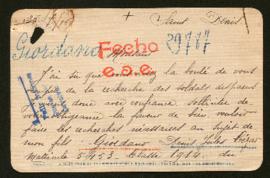 + Saint Denis
Giordano Monsieur
Fecho 39777
e.o.e.
J'ai su que vous aviez la bonté de vous
de la recherche des soldats disparus
donc avec confiance solliciter de
la faveur de bien vouloir
faire les recherches nécessaires au sujet de
mon fils Giordano Jules
matricule 5453 Classe 1914 du